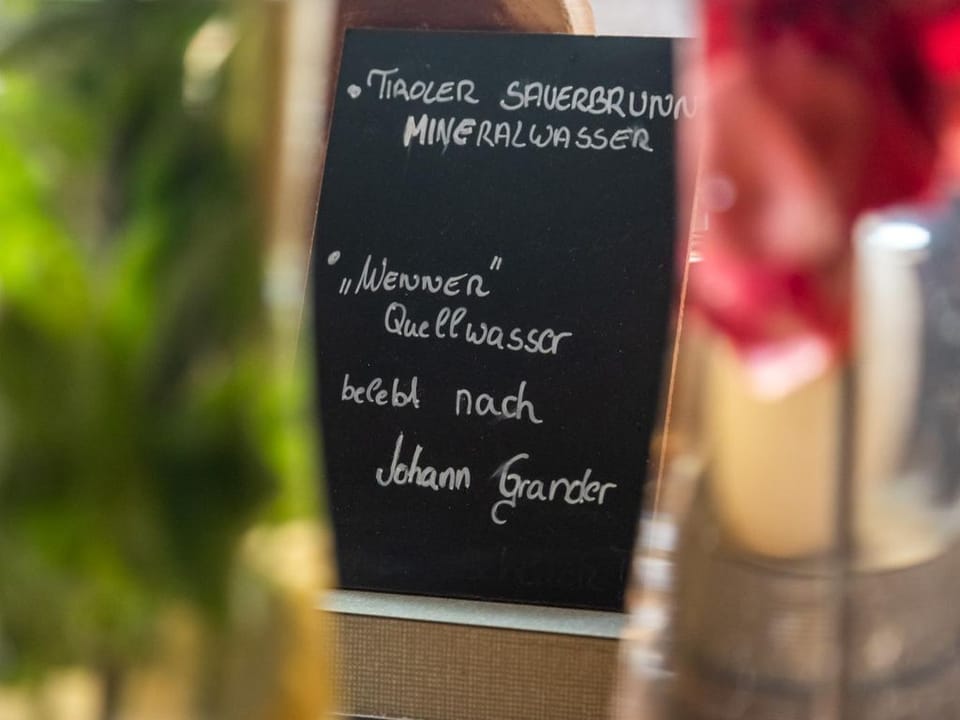 • TIROLER SAUERBRUNN
MINERALWASSER
• „WENNER"
Quellwasser
belebt nach
Johann Grander